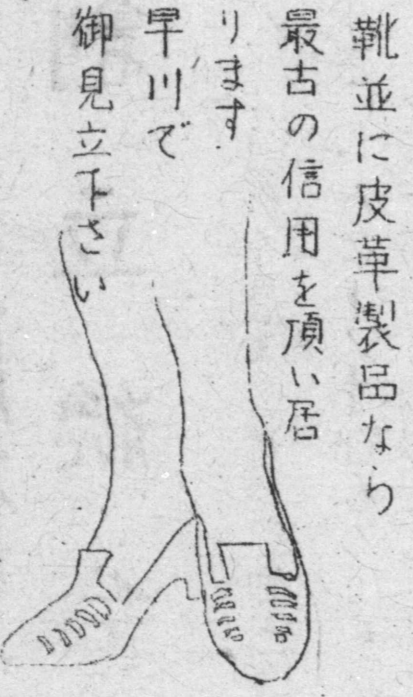 靴並に皮革製品なら
最古の信用を頂い居
ります
早川で
御見立下さい